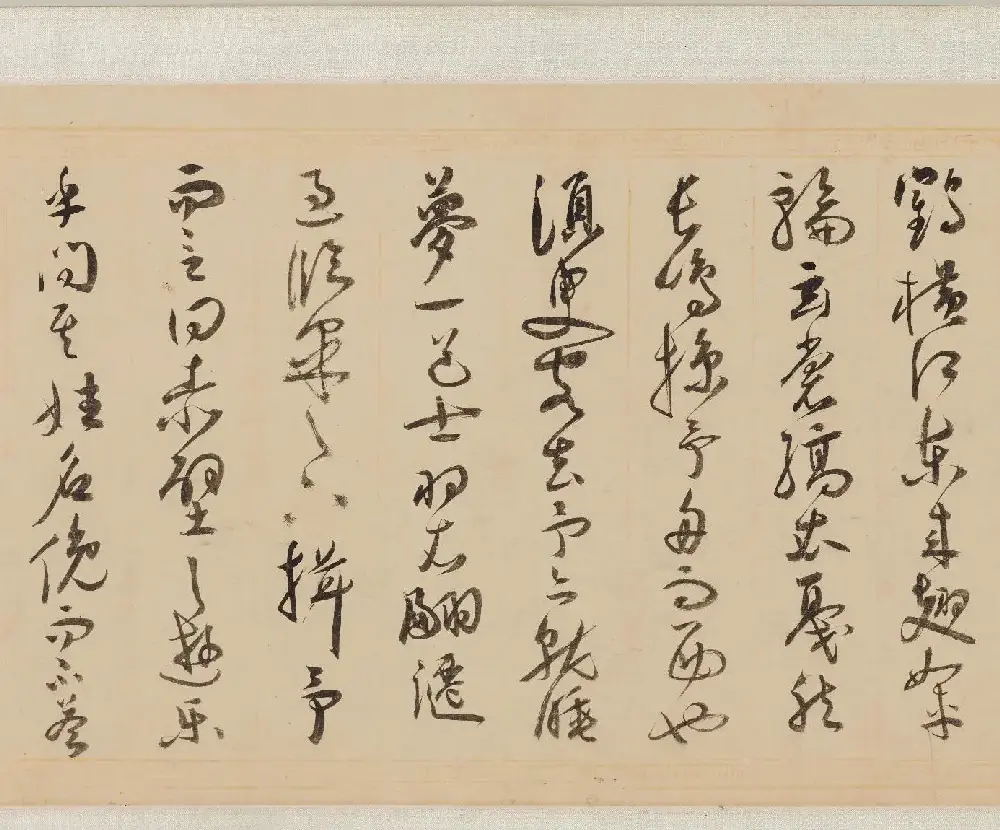 鶴橫江東來翅如車
輪玄裳縞衣戛然
長鳴掠予舟而西也
須臾客去予亦就睡
夢一道士羽衣翩躚
過臨皋之下揖予
而言曰赤壁之遊樂
乎問其姓名俛而不答